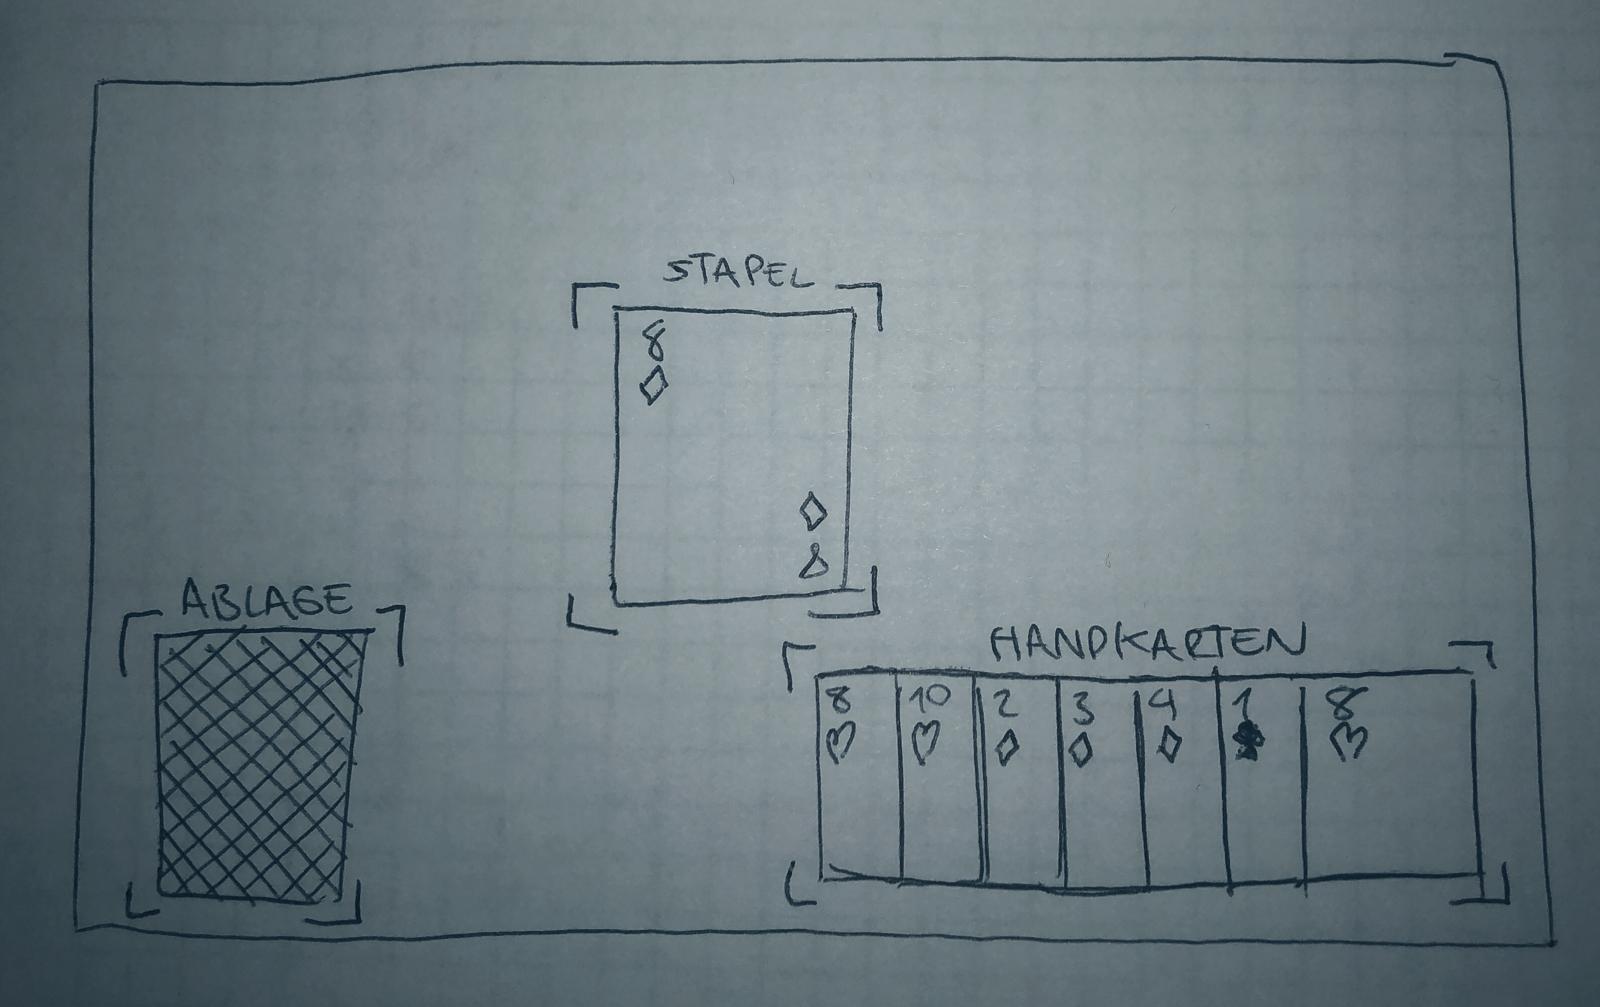 STAPEL
8
◇
◇
8
ABLAGE
HANDKARTEN
8 10 2 3 4 1 8
♡ ♡ ◇ ◇ ◇ ♣ ♡